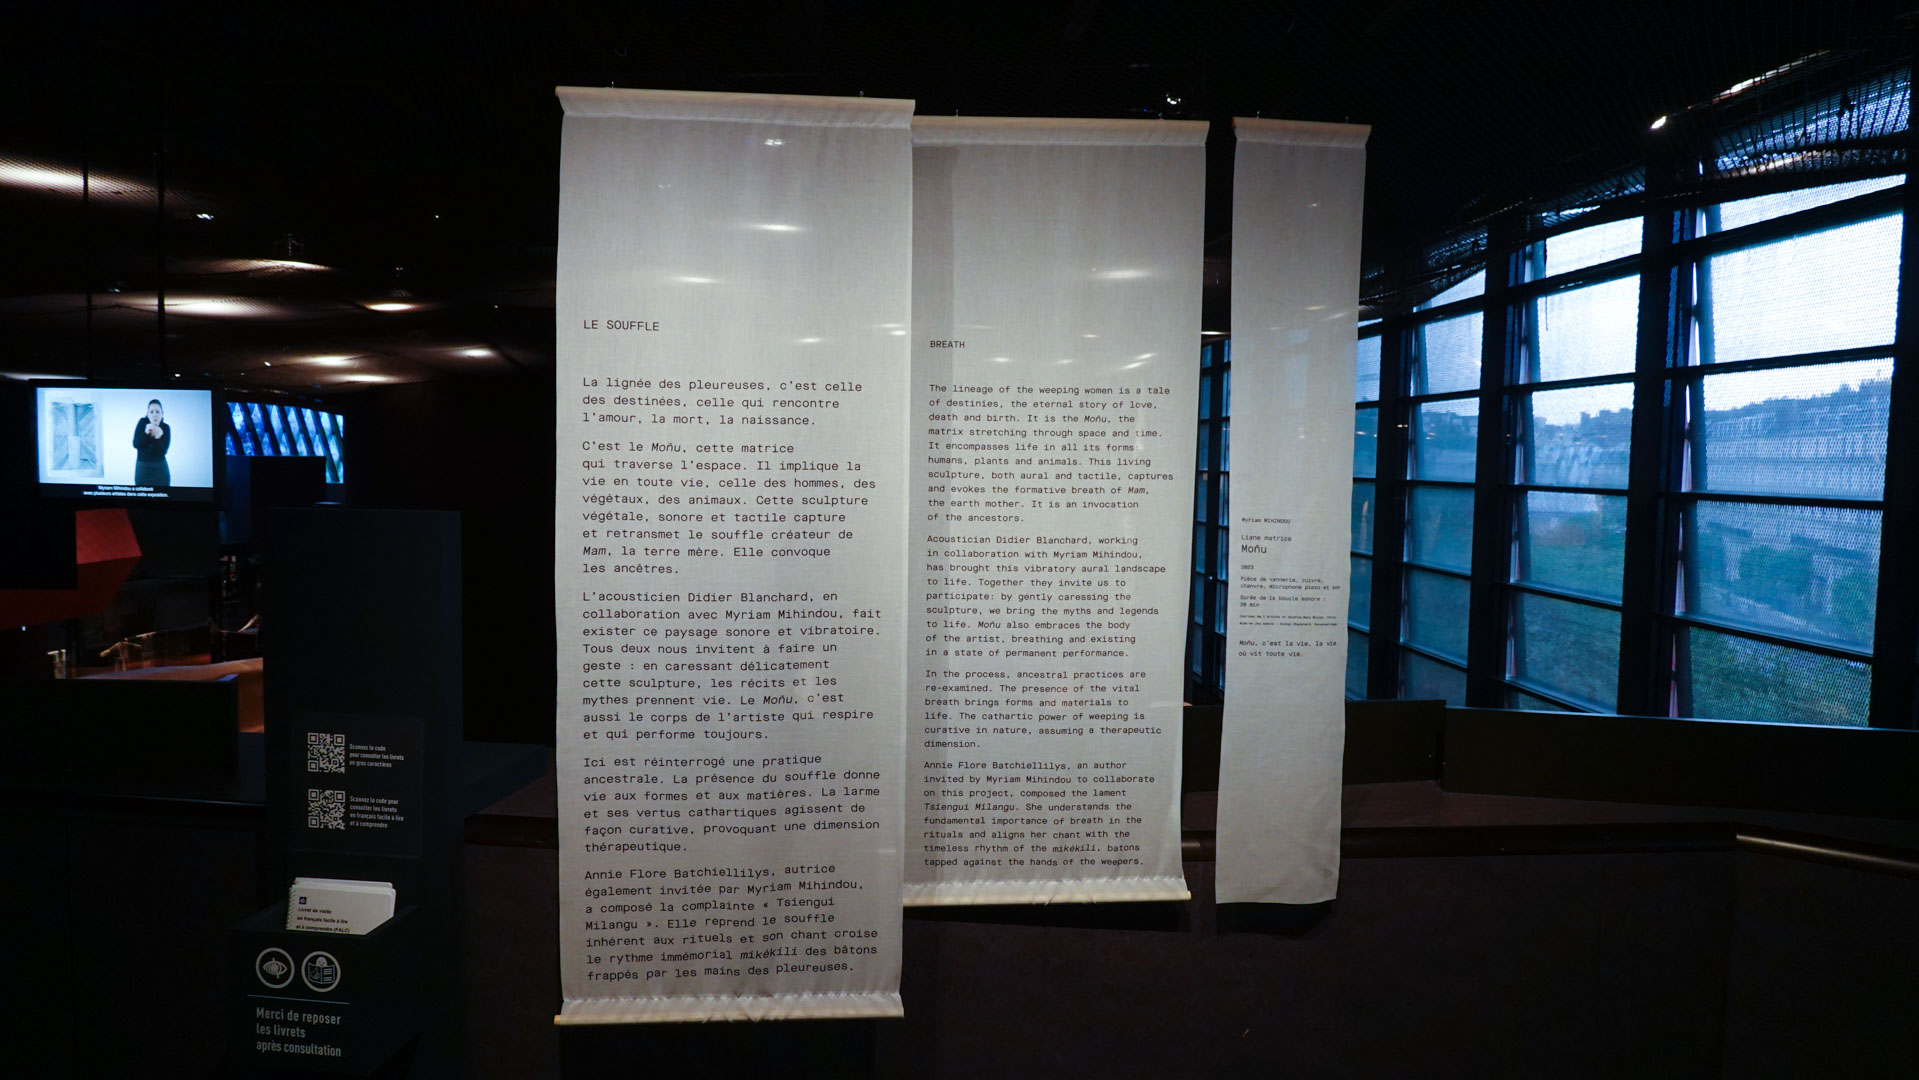 LE SOUFFLE
La lignée des pleureuses, c'est celle
des destinées, celle qui rencontre
l'amour, la mort, la naissance.
C'est le Moñu, cette matrice
qui traverse l'espace. Il implique la
vie en toute vie, celle des hommes, des
végétaux, des animaux. Cette sculpture
végétale, sonore et tactile capture
et retransmet le souffle créateur de
Mam, la terre mère. Elle convoque
les ancêtres.
L'acousticien Didier Blanchard, en
collaboration avec Myriam Mihindou, fait
exister ce paysage sonore et vibratoire.
Tous deux nous invitent à faire un
geste : en caressant délicatement
cette sculpture, les récits et les
mythes prennent vie. Le Moñu, c'est
aussi le corps de l'artiste qui respire
et qui performe toujours.
Ici est réinterrogé une pratique
ancestrale. La présence du souffle donne
vie aux formes et aux matières. La larme
et ses vertus cathartiques agissent de
façon curative, provoquant une dimension
thérapeutique.
Annie Flore Batchiellilys, autrice
également invitée par Myriam Mihindou,
a composé la complainte « Tsiengui
Milangu ». Elle reprend le souffle
inhérent aux rituels et son chant croise
le rythme immémorial mikékili des bâtons
frappés par les mains des pleureuses.
BREATH
The lineage of the weeping women is a tale
of destinies, the eternal story of love,
death and birth. It is the Moñu, the
matrix stretching through space and time.
It encompasses life in all its forms:
humans, plants and animals. This living
sculpture, both aural and tactile, captures
and evokes the formative breath of Mam,
the earth mother. It is an invocation
of the ancestors.
Acoustician Didier Blanchard, working
in collaboration with Myriam Mihindou,
has brought this vibratory aural landscape
to life. Together they invite us to
participate: by gently caressing the
sculpture, we bring the myths and legends
to life. Moñu also embraces the body
of the artist, breathing and existing
in a state of permanent performance.
In the process, ancestral practices are
re-examined. The presence of the vital
breath brings forms and materials to
life. The cathartic power of weeping is
curative in nature, assuming a therapeutic
dimension.
Annie Flore Batchiellilys, an author
invited by Myriam Mihindou to collaborate
on this project, composed the lament
Tsiengui Milangu. She understands the
fundamental importance of breath in the
rituals and aligns her chant with the
timeless rhythm of the mikékili, batons
tapped against the hands of the weepers.
Myriam MIHINDOU
Liane matrice
Moñu
2023
Pièce de vannerie, cuivre,
chanvre, microphone piezo et son
Durée de la boucle sonore :
20 min
Moñu, c'est la vie, la vie
où vit toute vie.
Myriam Mihindou a collaboré
avec plusieurs artistes dans cette exposition.
Scannez le code
pour consulter les livrets
en gros caractères
Scannez le code pour
consulter les livrets
en français facile à lire
et à comprendre
Livret de visite
en français facile à lire
et à comprendre (FALC)
Merci de reposer
les livrets
après consultation